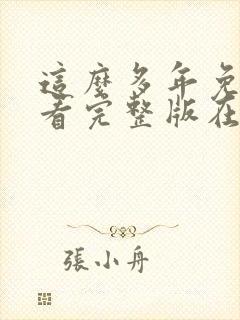 這麼多年免
看完整版在
張小舟